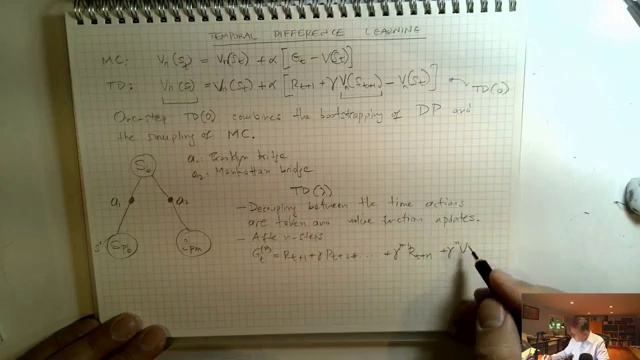 TEMPORAL DIFFERENCE LEARNING
MC: Vπ(St) = Vπ(St) + α [Gt - V(St)]
TD: Vπ(St) = Vπ(St) + α [Rt+1 + γ Vπ(St+1) - Vπ(St)] TD(0)
One-step TD(0) combines the bootstrapping of DP and
the sampling of MC.
a1: Brooklyn bridge
a2: Manhattan bridge
S6
a1 a2
s'
TD(λ)
- Decoupling between the time actions
are taken and value function updates.
- After n-steps
Gt(n) = Rt+1 + γ Rt+2 + ... + γ^n-1 Rt+n + γ^n V